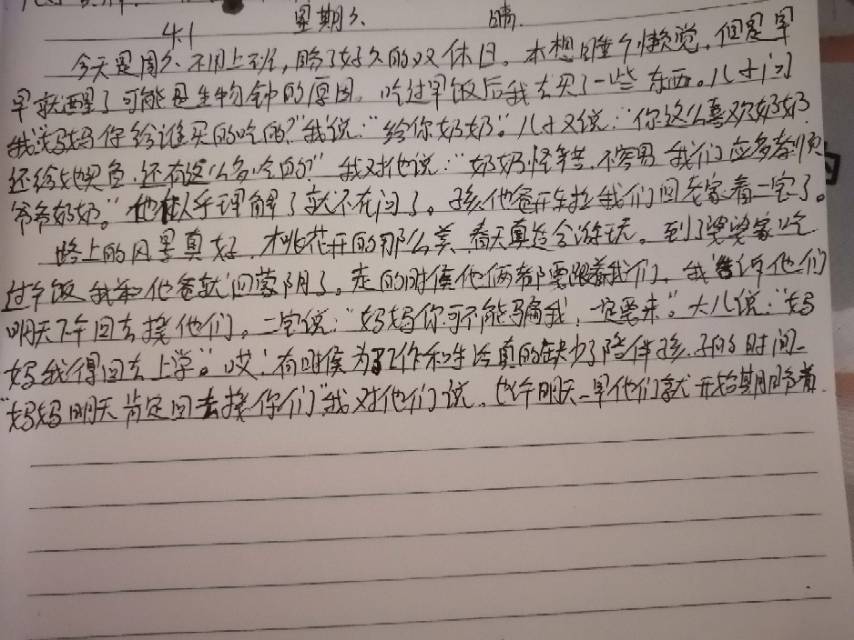 4.1 星期六 晴.
今天是周六不用上班,盼了好久的双休日。本想睡个懒觉,但是早
早就醒了可能是生物钟的原因。吃过早饭后我去买了一些东西。儿子问
我说妈妈你给谁买的吃的?"我说:"给你奶奶"。儿子又说:"你这么喜欢奶奶
还给她,还有这么多吃的"我对他说:"奶奶怪辛苦,不容易我们应多孝顺
爷爷奶奶。"他似乎理解了就不在问了。孩他爸开车拉我们回老家看二宝了。
路上的风景真好,桃花开的那么美,春天真适合游玩。到了婆婆家吃
过午饭我和他爸就回蒙阴了。走的时候他俩都要跟着我们,我告诉他们
明天下午回去接他们。二宝说:"妈妈你可不能骗我,一定要来"。大儿说:"妈
妈我得回去上学"。哎!有时候为了工作和生活真的缺少了陪伴孩子的时间_
"妈妈明天肯定回去接你们"我对他们说,也许明天一早他们就开始期盼着.